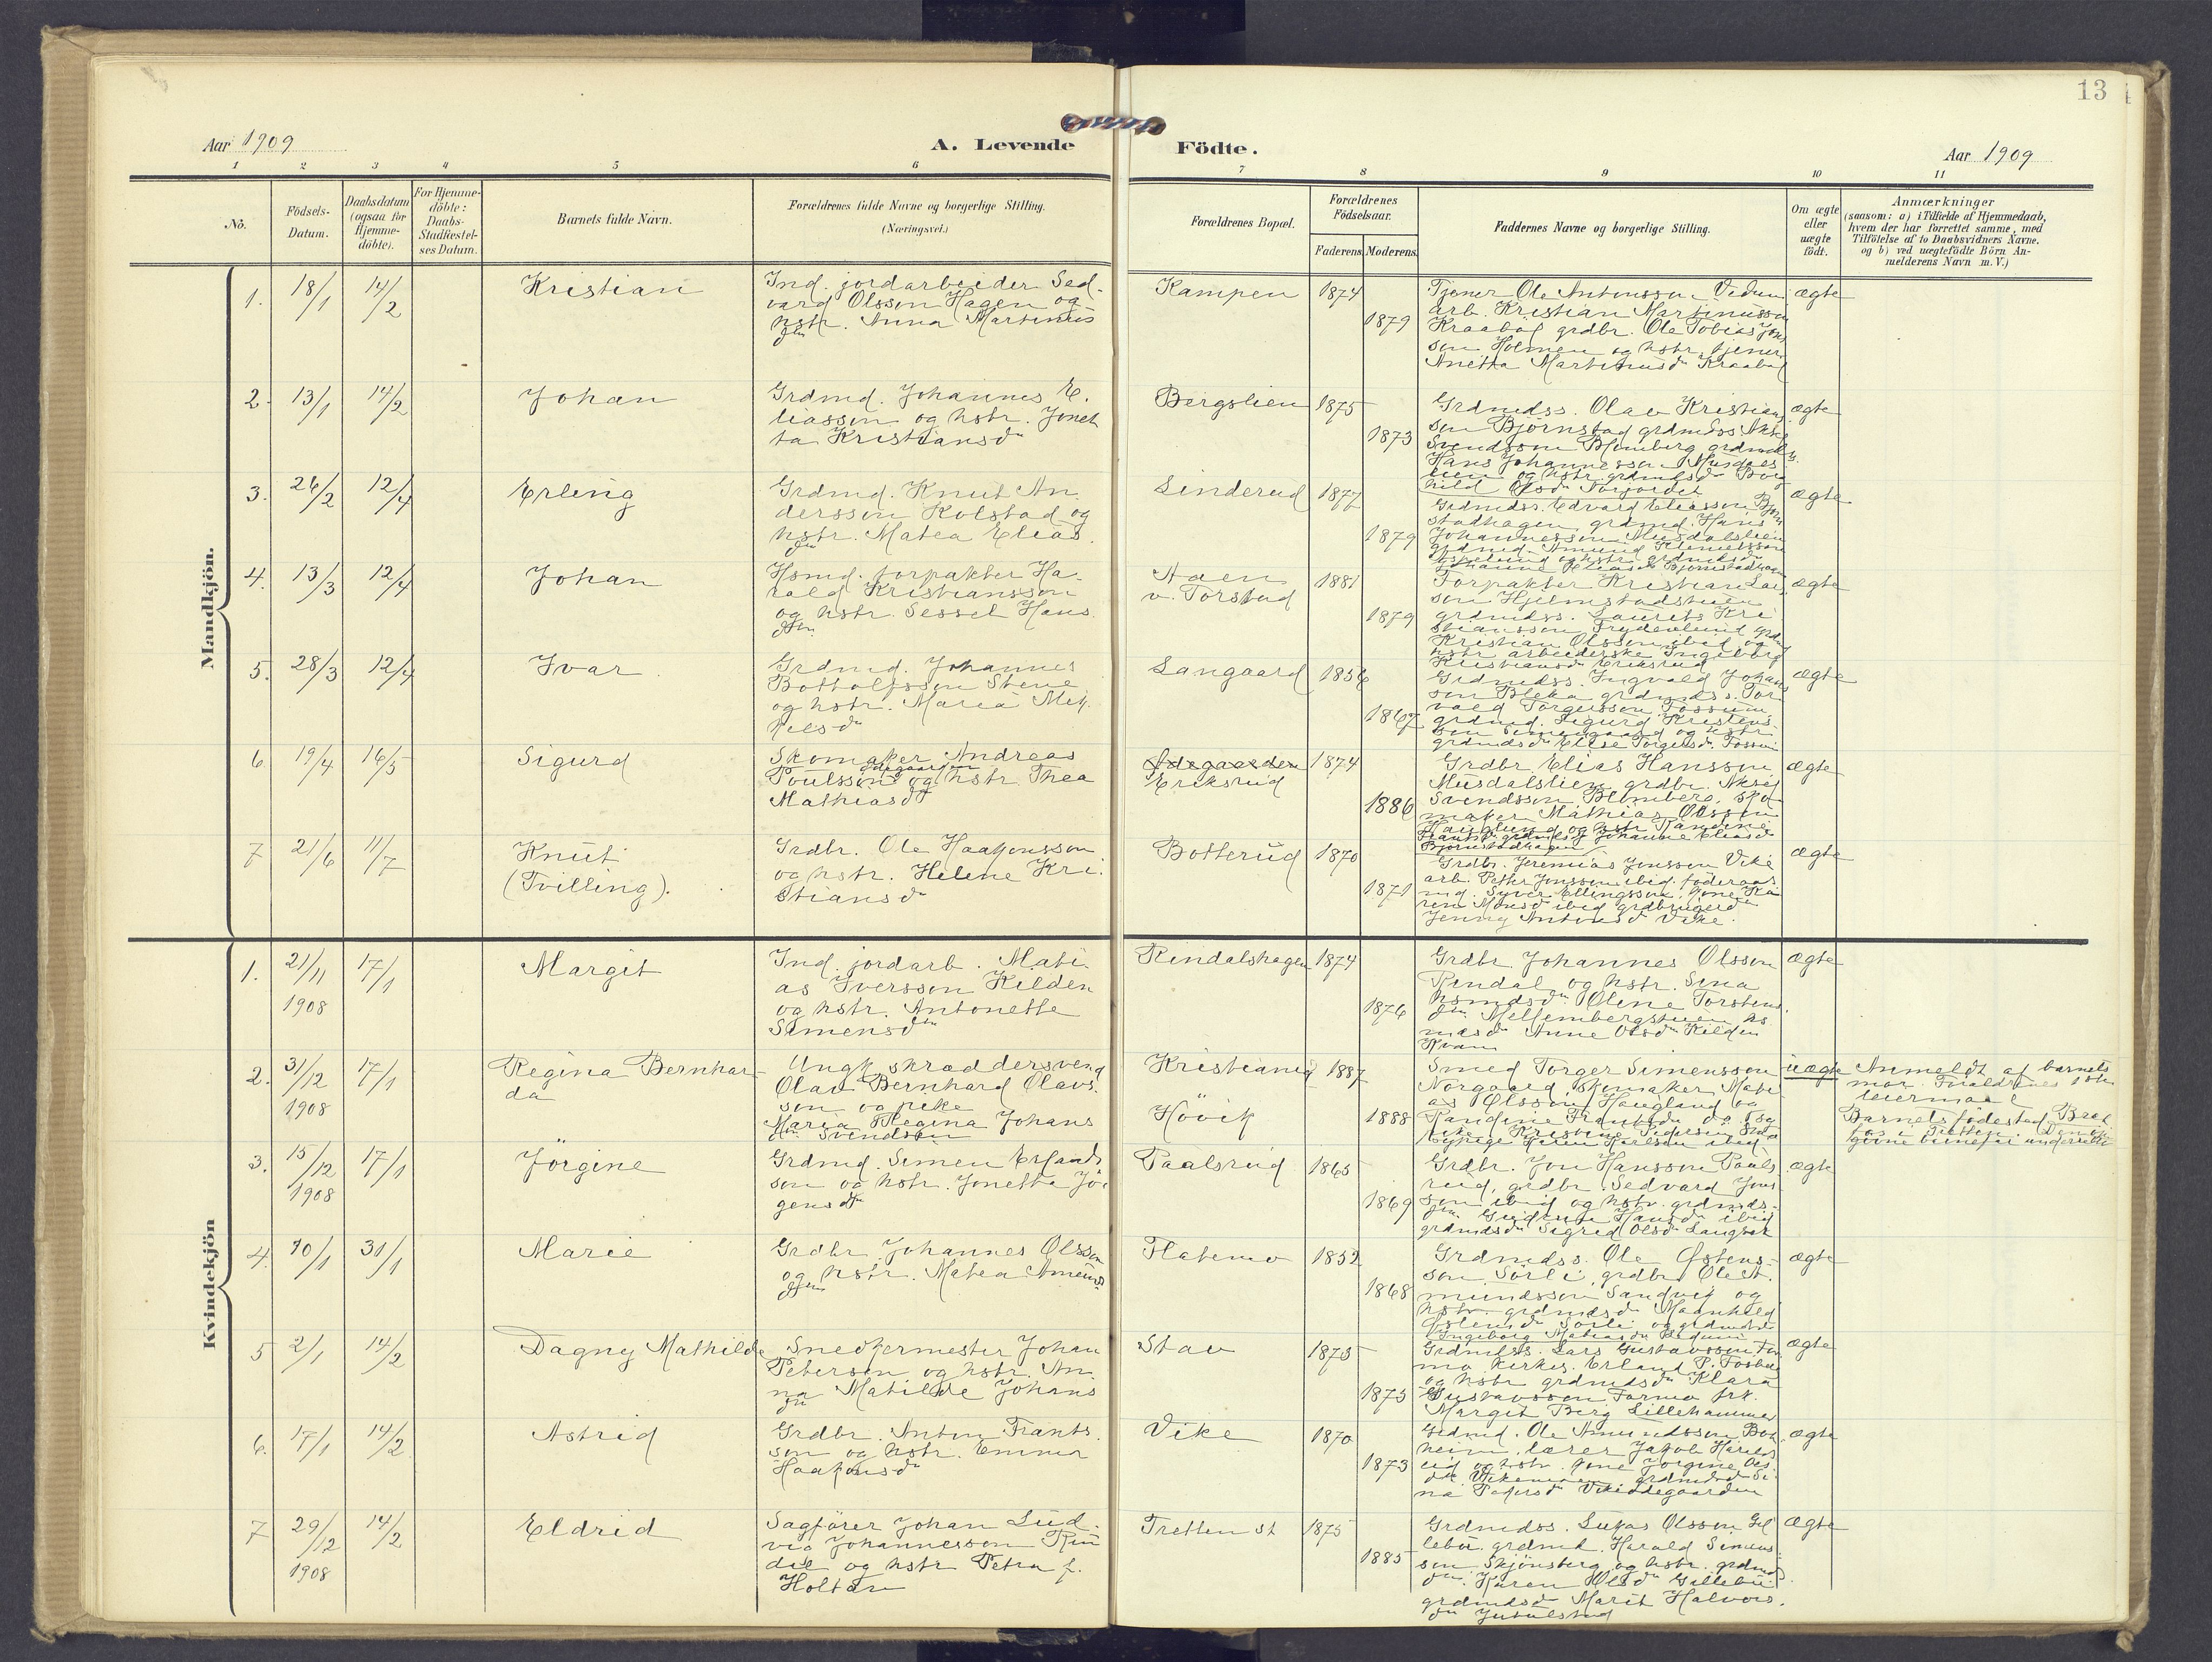 13
Aar 1909
A. Levende
Födte.
Aar 1909
1 2 3 4 5 6 7 8 9 10 11
No.
Födsels-
Datum.
Daabsdatum
(ogsaa for
Hjemme-
döbte).
For Hjemme-
döbte:
Daabs-
Stadfæstel-
ses Datum.
Barnets fulde Navn.
Forældrenes fulde Navne og borgerlige Stilling.
(Næringsvei.)
Forældrenes Bopæl.
Forældrenes
Födselsaar.
Faderens Moderens
Faddernes Navne og borgerlige Stilling.
Om ægte
eller
uægte
födt.
Anmærkninger
(saasom: a) i Tilfælde af Hjemmedaab,
hvem der har forrettet samme, med
Tilföielse af to Daabsvidners Navne.
og b) ved uægtefödte Börn An-
melderens Navn m.V.)
Mandkjön.
1. 18/1 14/2 Kristian
Ind. jordarbeider Sed-
vard Olsson Hagen og
hstr. Anna Martinus
dtr
Kampen 1874
1879
Tjener Ole Antonsson Vedum
arb. Kristian Martinusson
Kraabøl grdbr. Ole Tobias Jons
son Holmen og hstr. tjener
Anetta Martinusd Kraabøl
ægte
2. 13/1 14/2 Johan
Grdmd. Johannes E.
liasson og hstr. Jonet
ta Kristiansd
Bergslien 1875
1873
Grdmdss. Olav Kristians
son Björnstad grdmdss Aksel
Svendsson Blomberg grdmd
Hans Johannesson Musdals
lien og hstr. grdmdsd Bor
hild Olsd
ægte
3. 26/2 12/4 Erling
Grdmd. Knut An
dersson Kolstad og
hstr. Matea Elias
dtr
Linderud 1877
1879
Grdmdss. Edvard Eliasson Bjørn
stadhagen grdmd. Hans
Johannesson Musdalslien
grdmd. Amund
ægte
4. 13/3 12/4 Johan
Hsmd. forpakter Ha-
rald Kristiansson
og hstr. Sessel Hans
dtr
Aaen
v. Torstad
1881
1879
Forpakter Kristian Lars
son Hjelmstadstuen
grdmdss. Laurits Kri
stiansson Frydenlund grdm
Kristian Olsson ibid og
hstr arbeiderske Ingeborg
Kristiansd Eriksrud
ægte
5. 28/3 12/4 Ivar
Grdmd. Johannes
Bottolfsson Stene
og hstr. Maria Mik
kelsd
Langaard 1856
1867
Grdmdss. Ingvald Johans
son Bleka grdmdss. Tor
vald Torgersson Fossum
grdmd. Sigurd Kristens
son og hstr
grdmdsd Elise Torgersd. Fossum
ægte
6 19/4 16/5 Sigurd
Skomaker Andreas
Poulsson og hstr. Thea
Mathiasd
Eriksrud
1874
1886
Grdbr Elias Hansson
Musdalslien grdbr. Aksel
Svendsson Blomberg, sko-
maker Mathias Olsson
Hauglund og hstr Randine
Frantsd grdmdsd Johanne Eliasd
Björnstadhagen
ægte
7 21/6 11/7 Knut
(Tvilling).
Grdbr. Ole Haakonsson
og hstr. Helene Kri.
stiansd
Botterud 1870
1871
Grdbr. Jeremias Jonsson Vike
arb. Petter Jonsson ibid. föderaas
md. Syver Ellingsson, kone Ka
ren Monsd ibid grdbrugerd
Jenny Antonsd Vike.
ægte
Kvindekjön
1. 21/11 1908 17/1 Margit
Ind. jordarb. Mati-
as Iversson Kilden
og hstr. Antonette
Simensdtr
Rindalshagen 1874
1876
Grdbr. Johannes Olsson
Rindal og hstr. Sina
hsmdsd. Oline Torstens
dtr. Mellembergstuen hs
mdsd Anne Olsd Kilden
Kvam
ægte
2. 31/12 1908 17/1 Regina Bernhar-
da
Ungk. skræddersvend
Olav Bernhard Olavs
son og pike
Maria Regina Johans
dtr Svendsen
Kristiania 1887
Höövik
1888
Smed Torger Simensson
Norgaard Skomaker Mati
as Olsson Hauglund og
Randine Frantsd d.o.
uægte
Anmeldt af barnets
mor. Foraldrenes 1ste
leiermaal
Barnets födested
3. 15/12 1908 17/1 Jörgine
Grdmd. Simen Erlands
son og hstr. Jonetta Jör
gensd
Paalsrud 1865
1869
Grdbr. Jon Hansson Paals
rud, grdbr. Sedvard Jons
son ibid og hstr. grdmds-
dtr. Gudrun Hansd ibid
grdmdsd Sigrid Olsd
ægte
4. 10/1 31/1 Marie
Grdbr. Johannes Olsson
og hstr. Matea Amunds
dtr
Flatemo 1852
1868
Grdmdss. Ole Østens-
son Sörli, grdbr Ole A.
mundsson Sandvig og
hstr. grdmdsd Magnhild
Østensd Sörli og grdmdsd
Ingeborg Matiasd
ægte
5 2/1 14/2 Dagny Mathilde
Snedkermester Johan
Petersen og hstr. An-
na Matilde Johans
dtr
Stav 1873
1875
Grdmdss. Lars Gustavsson For
mo kirkes. Erland P. Fosbæk
og hstr grdmdsd Klara
Gustavsson Formo frk.
Margit Berg Lillehammer
ægte
6. 17/1 14/2 Astrid
Grdbr. Anton Frants.
son og hstr. Emma
Haakonsd
Vike 1870
1873
Grdmd. Ole Amundsson Bot
heim, lærer Jakob
og hstr. kone Jörgine Ols
dtr Vikemoen grdmdsd Si
na Vikeødegaarden
ægte
7 29/12 1908 14/2 Eldrid
Sagförer Johan Lud.
vig Johannesson Rin
dal og hstr Petra f.
Holtan
Tretten st 1875
1885
Grdmdss. Lukas Olsson Gil
lebu. grdmd. Harald Simens
son Skjönsberg og hstr. grdmds
dtr. Karen Olsd Gillebu
grdmdsd Marit Halvors.
dtr Jutulstad
ægte